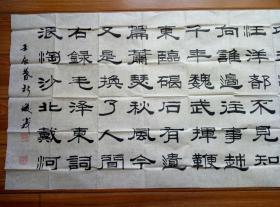 汪洋都不見知
向誰邊往事越
千年魏武揮鞭
東臨碣石有遺
篇蕭瑟秋風今
又是換了人間
右録毛澤東詞
浪淘沙北戴河
壬辰